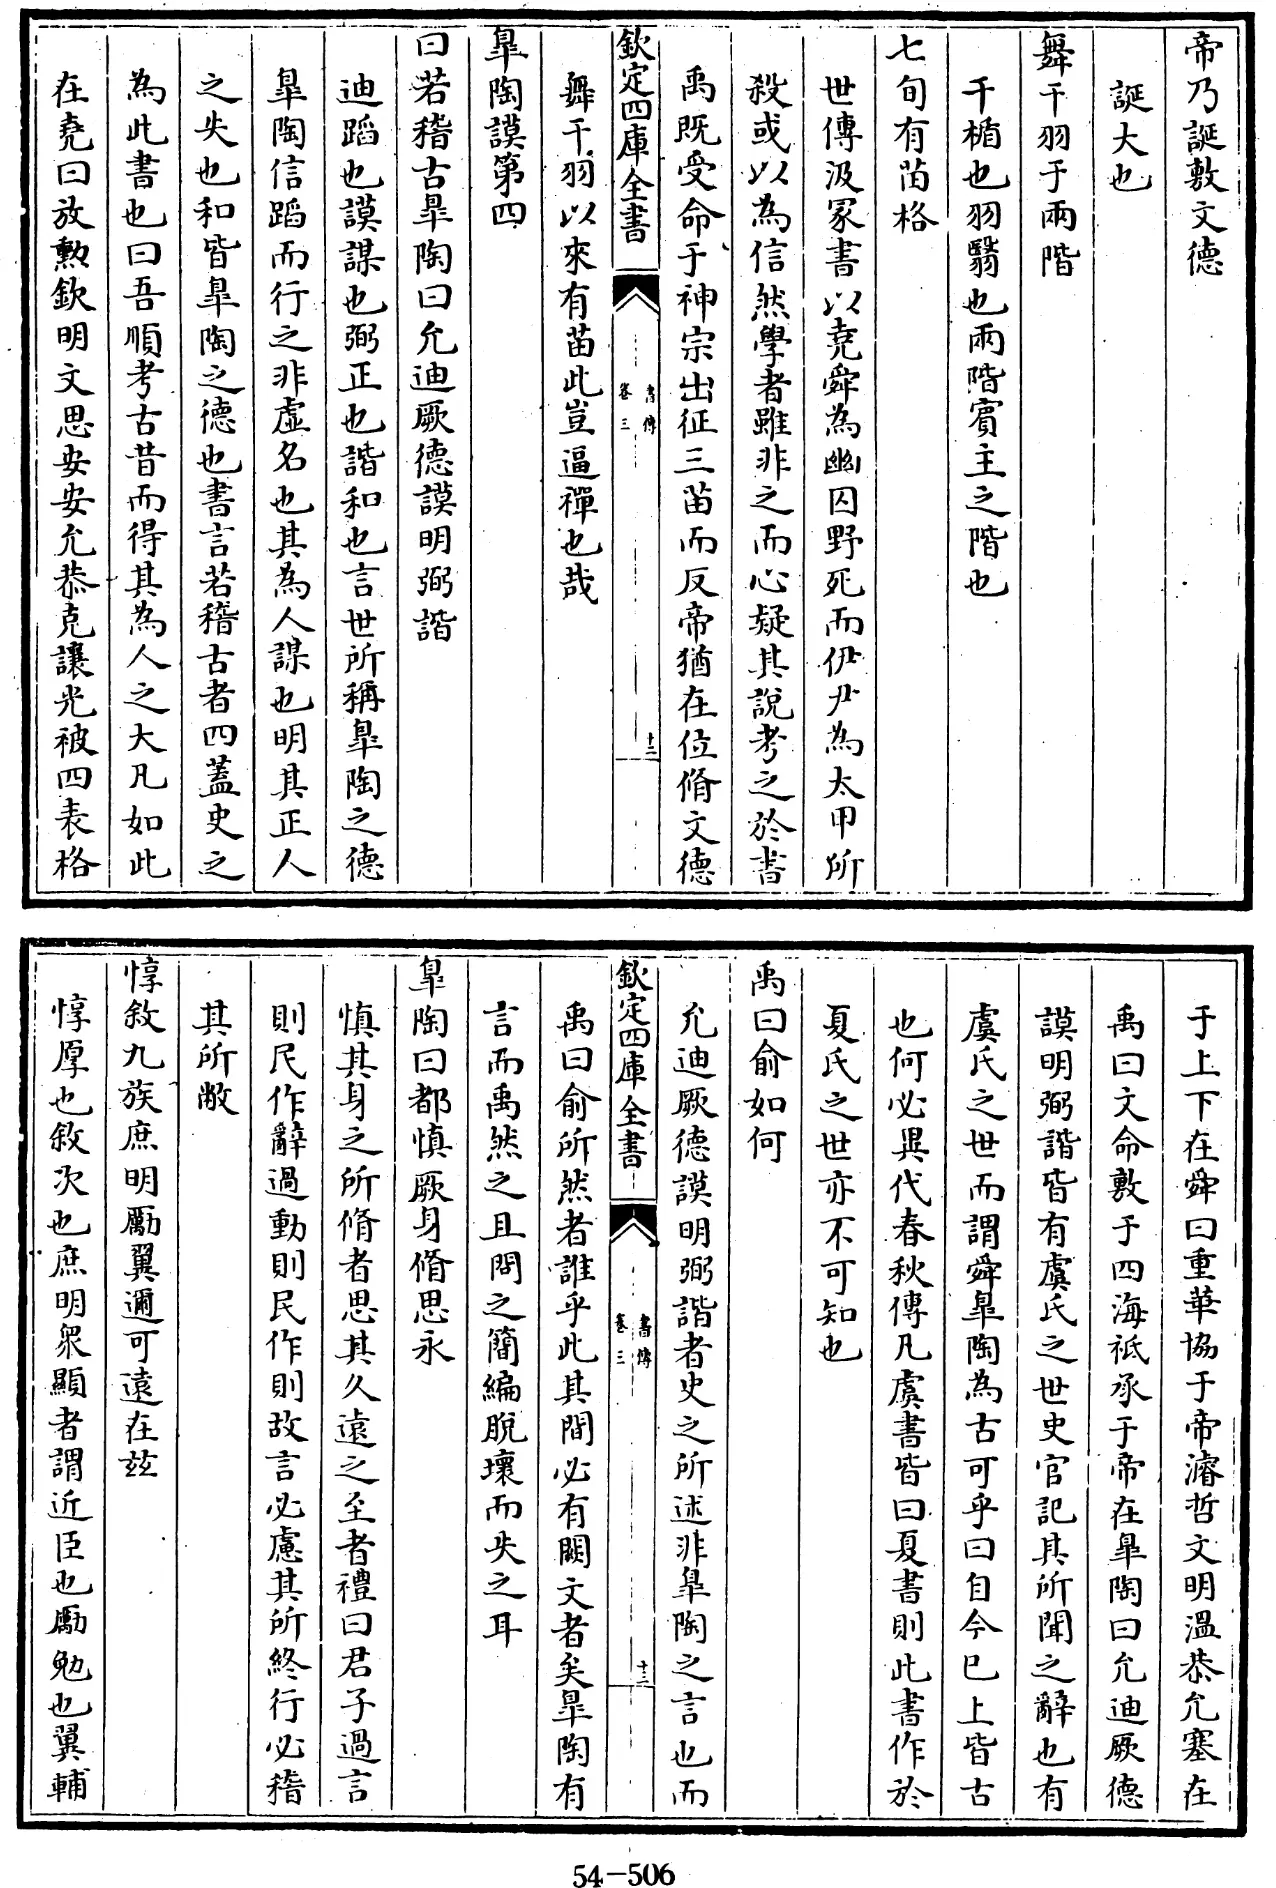 帝乃誕敷文德
誕大也
舞干羽于兩階
干楯也羽翳也兩階賓主之階也
七旬有苗格
世傳汲冢書以堯舜為幽囚野死而伊尹為太甲所
殺或以為信然學者雖非之而心疑其說考之於書
禹既受命于神宗出征三苗而反帝猶在位脩文德
欽定四庫全書
書傳
卷三
十二
舞干羽以來有苗此豈逼禪也哉
臯陶謨第四
曰若稽古臯陶曰允迪厥德謨明弼諧
迪蹈也謨謀也弼正也諧和也言世所稱臯陶之德
臯陶信蹈而行之非虛名也其為人謀也明其正人
之失也和皆臯陶之德也書言若稽古者四蓋史之
為此書也曰吾順考古昔而得其為人之大凡如此
在堯曰放勲欽明文思安安允恭克讓光被四表格
于上下在舜曰重華協于帝濬哲文明溫恭允塞在
禹曰文命敷于四海祇承于帝在臯陶曰允迪厥德
謨明弼諧皆有虞氏之世史官記其所聞之辭也有
虞氏之世而謂舜臯陶為古可乎曰自今已上皆古
也何必異代春秋傳凡虞書皆曰夏書則此書作於
夏氏之世亦不可知也
禹曰俞如何
允迪厥德謨明弼諧者史之所述非臯陶之言也而
欽定四庫全書
書傳
卷三
十三
禹曰俞所然者誰乎此其間必有闕文者矣臯陶有
言而禹然之且問之簡編脫壞而失之耳
臯陶曰都慎厥身脩思永
慎其身之所脩者思其久遠之至者禮曰君子過言
則民作辭過動則民作則故言必慮其所終行必稽
其所敝
惇敘九族庶明勵翼邇可遠在茲
惇厚也敘次也庶明衆顯者謂近臣也勵勉也翼輔
54-506